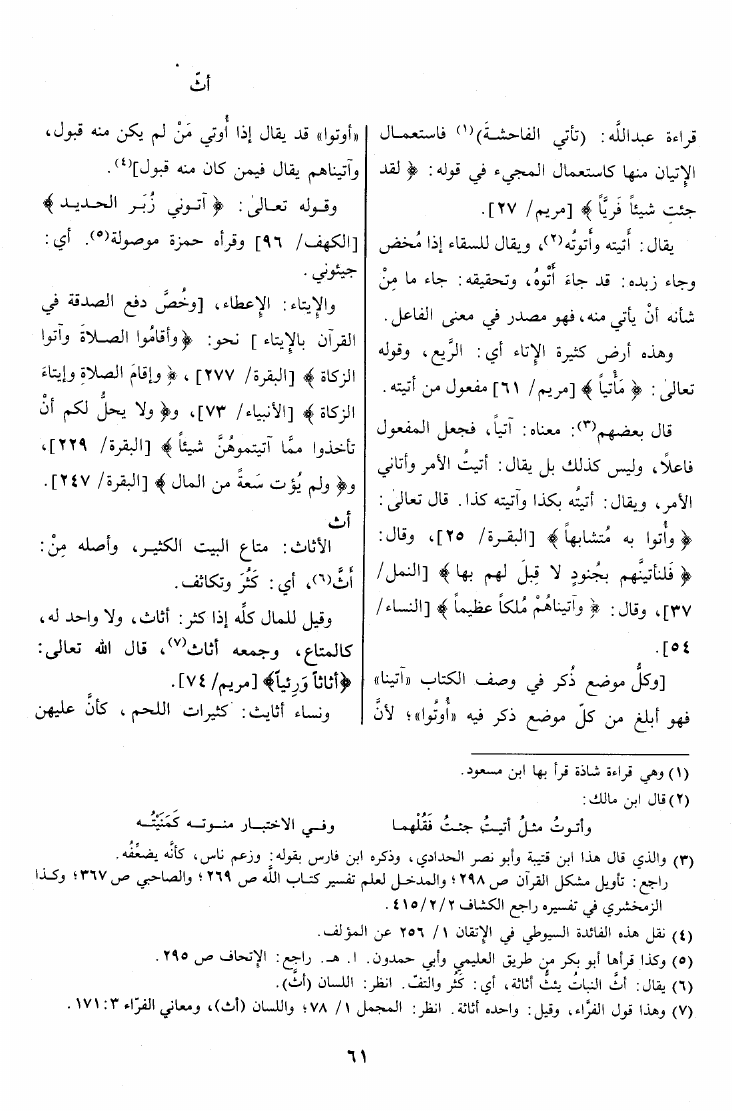 أثّ
قراءة عبداللَّه: (تأتي الفاحشةَ)(١) فاستعمال
الإتيان منها كاستعمال المجيء في قوله: ﴿ لقد
جئتِ شيئاً فَرِيَّاً ﴾ [مريم/ ٢٧].
يقال: أتيته وأتوتُه(٢)، ويقال للسقاء إذا مُخض
وجاء زبده: قد جاءَ أَتْوُهُ، وتحقيقه: جاء ما مِنْ
شأنه أنْ يأتي منه، فهو مصدر في معنى الفاعل.
وهذه أرض كثيرة الإتاء أي: الرَّيع، وقوله
تعالى: ﴿ مَأْتياً ﴾ [مريم/ ٦١] مفعول من أتيته.
قال بعضهم(٣): معناه: آتياً، فجعل المفعول
فاعلًا، وليس كذلك بل يقال: أتيتُ الأمر وأتاني
الأمر، ويقال: أتيتُه بكذا وآتيته كذا. قال تعالى:
﴿ وأُتوا به مُتشابهاً ﴾ [البقرة/ ٢٥]، وقال:
﴿ فَلنأتينَّهم بجُنودٍ لا قِبلَ لهم بها ﴾ [النمل/
٣٧]، وقال: ﴿ وآتيناهُمْ مُلكاً عظيماً ﴾ [النساء/
٥٤].
[وكلُّ موضع ذُكر في وصف الكتاب «آتينا»
فهو أبلغ من كلّ موضع ذكر فيه «أُوتُوا»؛ لأنَّ
«أوتوا» قد يقال إذا أُوتي مَنْ لم يكن منه قبول،
وآتيناهم يقال فيمن كان منه قبول](٤).
وقوله تعالى: ﴿ آتوني زُبَر الحديد ﴾
[الكهف/ ٩٦] وقرأه حمزة موصولة(٥). أي:
جيئوني.
والإيتاء: الإعطاء، [وخُصَّ دفع الصدقة في
القرآن بالإيتاء ] نحو: ﴿ وأقامُوا الصلاةَ وآتوا
الزكاة ﴾ [البقرة/ ٢٧٧]، ﴿ وإقامَ الصلاةِ وإيتاءَ
الزكاة ﴾ [الأنبياء/ ٧٣]، و﴿ ولا يحلُّ لكم أنْ
تأخذوا ممَّا آتيتموهُنَّ شيئاً ﴾ [البقرة/ ٢٢٩]،
و﴿ ولم يُؤت سَعةً من المال ﴾ [البقرة/ ٢٤٧].
أث
الأثاث: متاع البيت الكثير، وأصله مِنْ:
أَثَّ(٦)، أي: كَثُرَ وتكاثف.
وقيل للمال كلِّه إذا كثر: أثاث، ولا واحد له،
كالمتاع، وجمعه أثاث(٧)، قال الله تعالى:
﴿أثاثاً وَرِئياً﴾ [مريم/ ٧٤].
ونساء أثايث: كثيرات اللحم، كأنَّ عليهن
(١) وهي قراءة شاذة قرأ بها ابن مسعود.
(٢) قال ابن مالك:
وأتوتُ مثلُ أتيتُ جئتُ فَقُلْهما وفي الاختبار منوته كَمَنَيْتُه
(٣) والذي قال هذا ابن قتيبة وأبو نصر الحدادي، وذكره ابن فارس بقوله: وزعم ناس، كأنَّه يضعِّفُه.
راجع: تأويل مشكل القرآن ص ٢٩٨؛ والمدخل لعلم تفسير كتاب اللَّه ص ٢٦٩؛ والصاحبي ص ٣٦٧؛ وكذا
الزمخشري في تفسيره راجع الكشاف ٤١٥/٢/٢.
(٤) نقل هذه الفائدة السيوطي في الإتقان ١/ ٢٥٦ عن المؤلف.
(٥) وكذا قرأها أبو بكر من طريق العليمي وأبي حمدون. ا. هـ. راجع: الإتحاف ص ٢٩٥.
(٦) يقال: أثَّ النباتُ يئثُّ أثاثة، أي: كثُر والتفّ. انظر: اللسان (أثّ).
(٧) وهذا قول الفرَّاء، وقيل: واحده أثاثة. انظر: المجمل ١/ ٧٨؛ واللسان (أث)، ومعاني الفرّاء ٣: ١٧١.
٦١